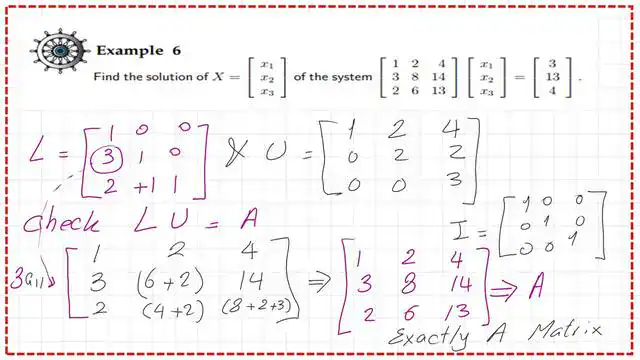 Example 6
Find the solution of X = [ x1 x2 x3 ] of the system [ 1 2 4 3 8 14 2 6 13 ] [ x1 x2 x3 ] = [ 3 13 4 ] .
L = [ 1 0 0 3 1 0 2 +1 1 ] & U = [ 1 2 4 0 2 2 0 0 3 ]
Check LU = A
I = [ 1 0 0 0 1 0 0 0 1 ]
3a11 [ 1 2 4 3 (6+2) 14 2 (4+2) (8+2+3) ] ⇒ [ 1 2 4 3 8 14 2 6 13 ] ⇒ A
Exactly A Matrix